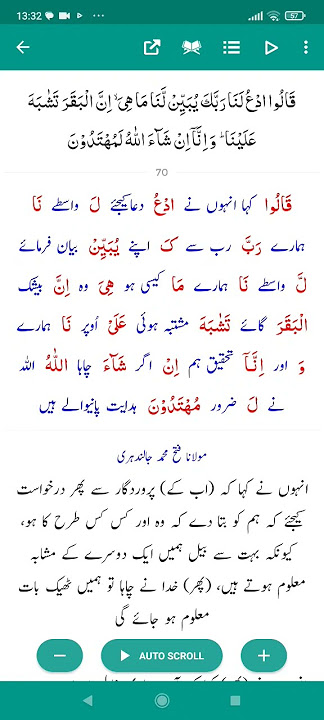 13:32
57
قَالُوا ادْعُ لَنَا رَبَّكَ يُبَيِّنْ لَّنَا مَا هِيَۙ اِنَّ الْبَقَرَ تَشٰبَهَ
عَلَيْنَاؕ وَ اِنَّاۤ اِنْ شَآءَ اللّٰهُ لَمُهْتَدُوْنَ
70
قَالُوا کہا انہوں نے ادْعُ دعا کیجئے لَ واسطے نَا
ہمارے رَبَّ رب سے کَ اپنے یُبَیِّنْ بیان فرمائے
لَّ واسطے نَا ہمارے مَا کیسی ہو هِیَ وہ اِنَّ بیشک
الْبَقَرَ گائے تَشٰبَهَ مشتبہ ہوئی عَلَیْ اُوپر نَا ہمارے
وَ اور اِنَّاۤ تحقیق ہم اِنْ اگر شَآءَ چاہا اللّٰهُ اللہ
نے لَ ضرور مُهْتَدُوْنَ ہدایت پانیوالے ہیں
مولانا فتح محمد جالندہری
انہوں نے کہا کہ (اب کے) پروردگار سے پھر درخواست
کیجئے کہ ہم کو بتا دے کہ وہ اور کس کس طرح کا ہو،
کیونکہ بہت سے بیل ہمیں ایک دوسرے کے مشابہ
معلوم ہوتے ہیں، (پھر) خدا نے چاہا تو ہمیں ٹھیک بات
معلوم ہو جائے گی
AUTO SCROLL